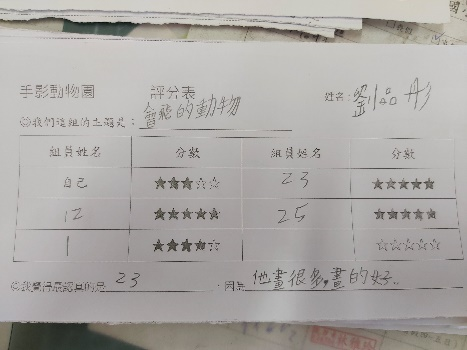 手影動物園 評分表 姓名：劉品彤
☺我們這組的主題是：會飛的動物
組員姓名 分數 組員姓名 分數
自己 ★★★☆☆ 23 ★★★★★
12 ★★★★★ 25 ★★★★★
1 ★★★★☆ ☆☆☆☆☆
☺我覺得最認真的是 23 ，因為他畫很多，畫的好。